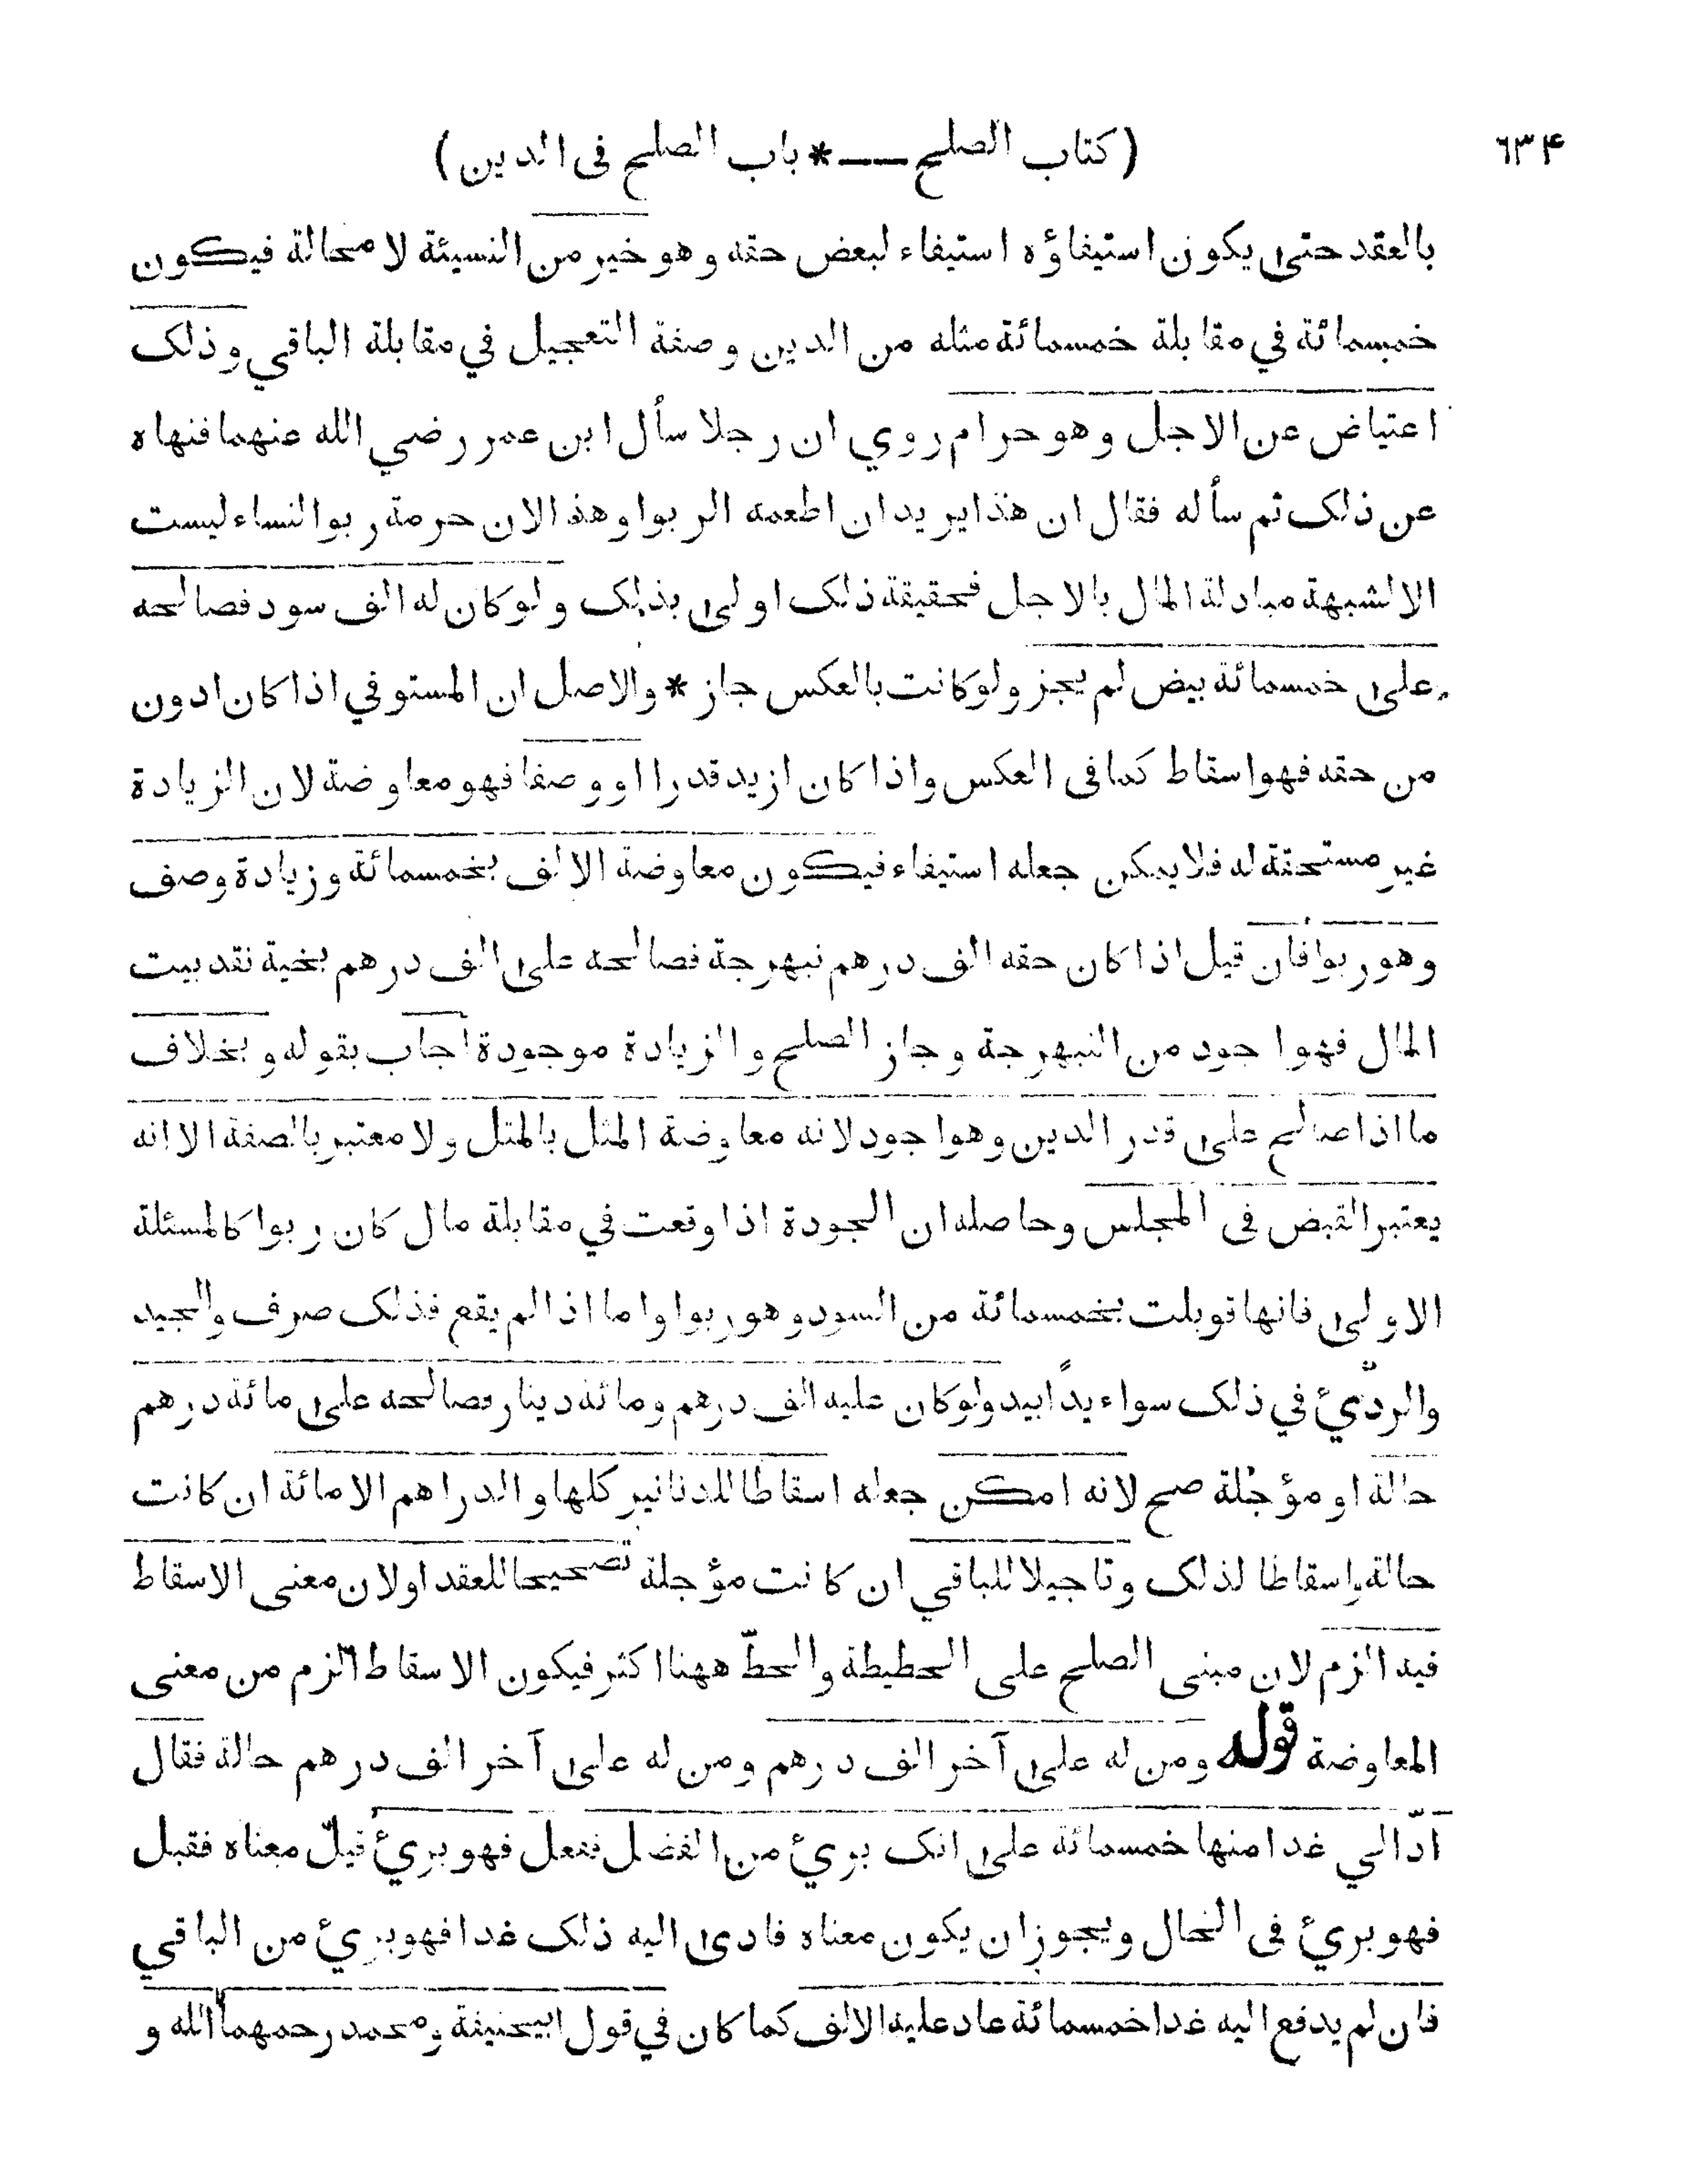 (كتاب الصلح — * باب الصلح فى الدين) ٦٣۴
بالعقد حتى يكون استيفاؤه استيفاء لبعض حقه وهو خير من النسيئة لا محالة فيكون
خمسمائة في مقابلة خمسمائة مثله من الدين وصفة التعجيل في مقابلة الباقي وذلك
اعتياض عن الاجل وهو حرام روي ان رجلا سأل ابن عمر رضي الله عنهما فنهاه
عن ذلك ثم سأله فقال ان هذا يريد ان اطعمه الربوا وهذا لان حرمة ربوا النساء ليست
الا لشبهة مبادلة المال بالاجل فحقيقة ذلك اولى بذلك ولو كان له الف سود فصالحه
على خمسمائة بيض لم يجز ولو كانت بالعكس جاز * والاصل ان المستوفي اذا كان ادون
من حقه فهو اسقاط كما فى العكس واذا كان ازيد قدرا او وصفا فهو معاوضة لان الزيادة
غير مستحقة له فلا يمكن جعله استيفاء فيكون معاوضة الالف بخمسمائة وزيادة وصف
وهو ربوا فان قيل اذا كان حقه الف درهم نبهرجة فصالحه على الف درهم بخية نقد بيت
المال فهو اجود من النبهرجة وجاز الصلح والزيادة موجودة اجاب بقوله وبخلاف
ما اذا صالح على قدر الدين وهو اجود لانه معاوضة المثل بالمثل ولا معتبر بالصفة الا انه
يعتبر القبض فى المجلس وحاصله ان الجودة اذا وقعت في مقابلة مال كان ربوا كالمسئلة
الاولى فانها قوبلت بخمسمائة من السود وهو ربوا واما اذا لم يقع فذلك صرف والجيد
والردّيئ في ذلك سواء يدًا بيد ولو كان عليه الف درهم ومائة دينار فصالحه على مائة درهم
حالة او مؤجلة صح لانه امكن جعله اسقاطا للدنانير كلها والدراهم الا مائة ان كانت
حالة واسقاطا لذلك وتاجيلا للباقي ان كانت مؤجلة تصحيحا للعقد او لان معنى الاسقاط
فيه الزم لان مبنى الصلح على الحطيطة والحطّ ههنا اكثر فيكون الاسقاط الزم من معنى
المعاوضة قوله ومن له على آخر الف درهم ومن له على آخر الف درهم حالة فقال
ادّ الي غدا منها خمسمائة على انك بريئ من الفضل ففعل فهو بريئ قيل معناه فقبل
فهو بريئ فى الحال ويجوز ان يكون معناه فادى اليه ذلك غدا فهو بريئ من الباقي
فان لم يدفع اليه غدا خمسمائة عاد عليه الالف كما كان في قول ابيحنيفة ومحمد رحمهما الله و